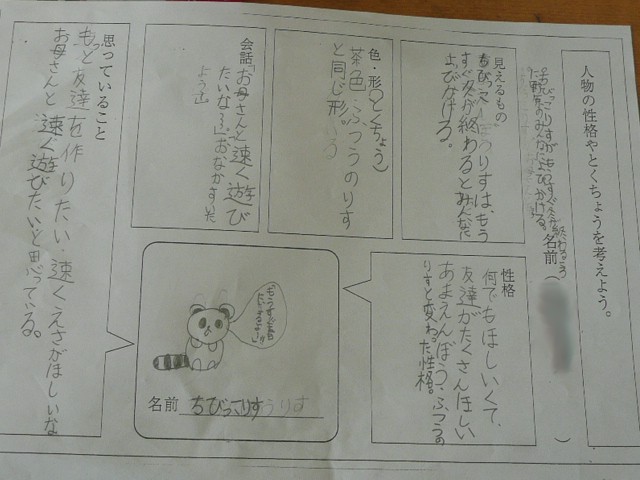 人物の性格やとくちょうを考えよう。
名前（　）
見えるもの
ちびっこりすは、もう
すぐ冬が終わるとみんなに
よびかける。
色・形（とくちょう）
茶色、ふつうのりす
と同じ形。
会話「お母さんと速く遊び
たいな～」「おなかすいた
よう」」
思っていること
もっと友達を作りたい。速くえさがほしいな
お母さんと速く遊びたいと思っている。
性格
何でもほしいくて、
友達がたくさんほしい
あまえんぼう、ふつうの
りすと変わった性格。
名前 ちびっこりす